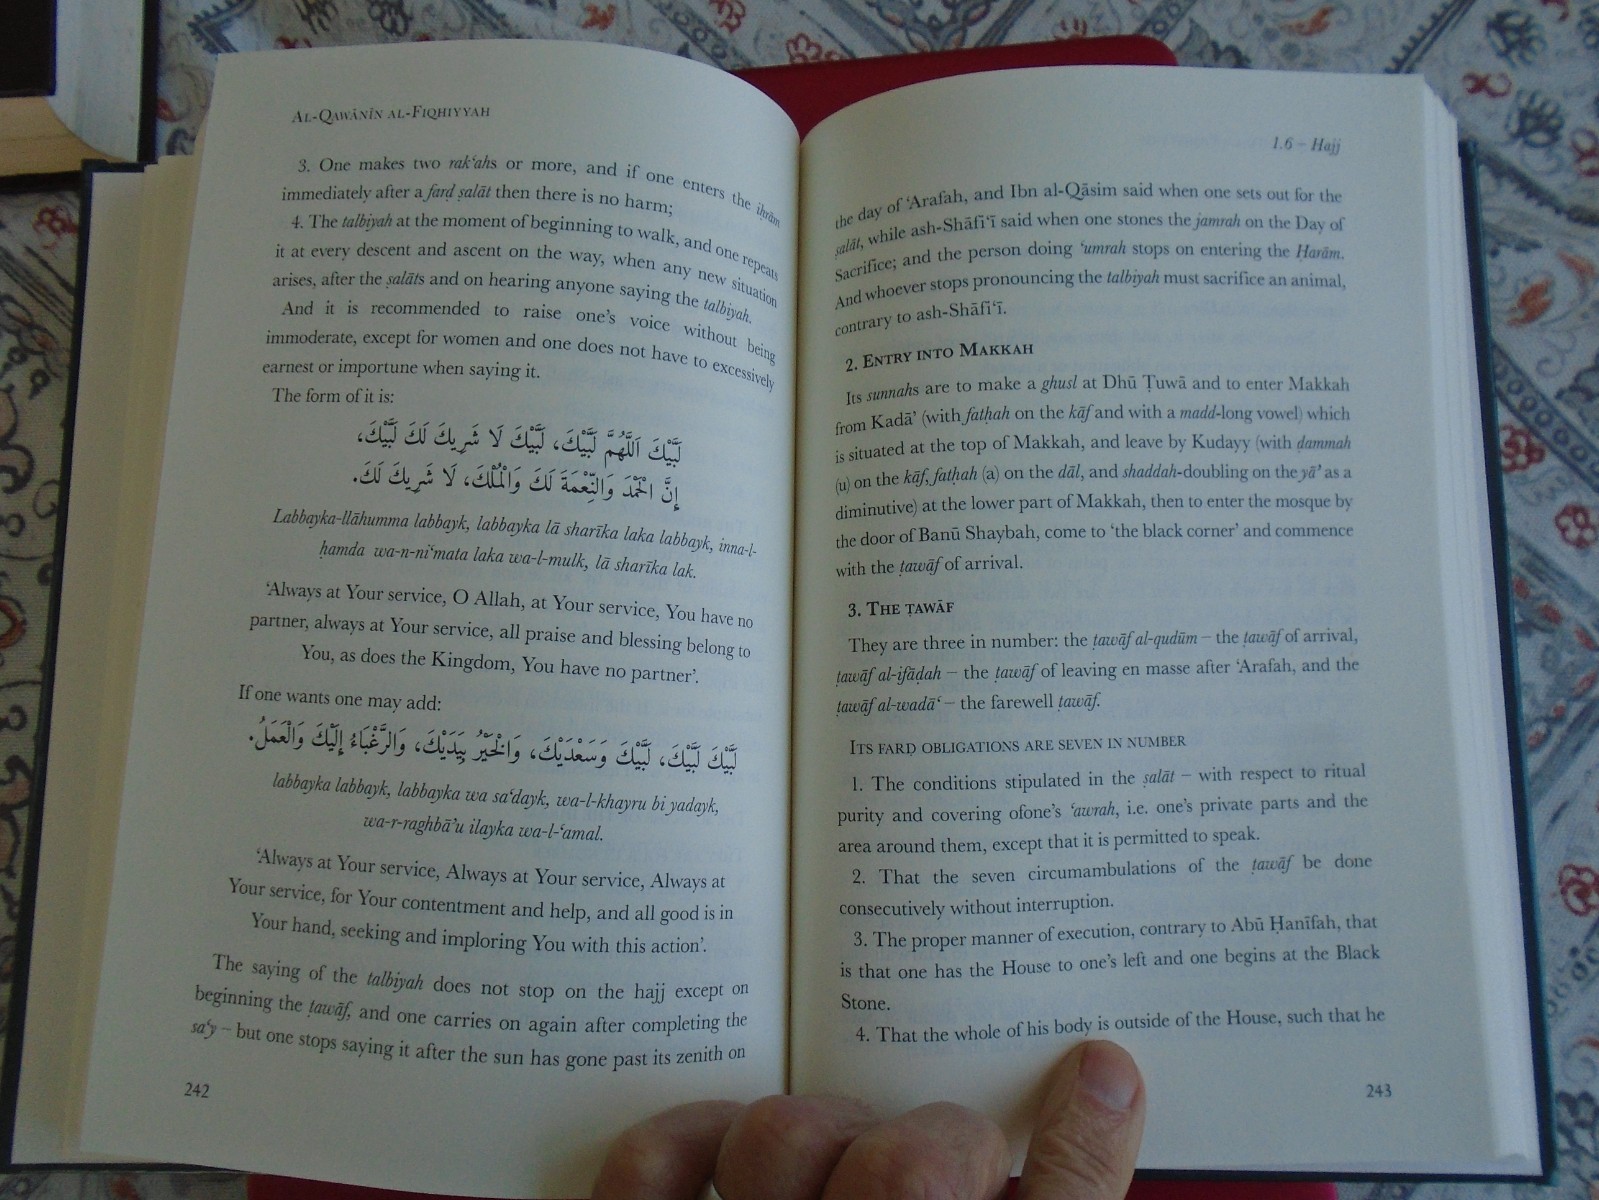 AL-QAWĀNĪN AL-FIQHIYYAH
3. One makes two rak‘ahs or more, and if one enters the iḥrām
immediately after a farḍ ṣalāt then there is no harm;
4. The talbiyah at the moment of beginning to walk, and one repeats
it at every descent and ascent on the way, when any new situation
arises, after the ṣalāts and on hearing anyone saying the talbiyah.
And it is recommended to raise one’s voice without being
immoderate, except for women and one does not have to excessively
earnest or importune when saying it.
The form of it is:
لَبَّيْكَ اَللَّهُمَّ لَبَّيْكَ، لَبَّيْكَ لَا شَرِيكَ لَكَ لَبَّيْكَ،
إِنَّ الْحَمْدَ وَالنِّعْمَةَ لَكَ وَالْمُلْكَ، لَا شَرِيكَ لَكَ.
Labbayka-llāhumma labbayk, labbayka lā sharīka laka labbayk, inna-l-
ḥamda wa-n-ni‘mata laka wa-l-mulk, lā sharīka lak.
‘Always at Your service, O Allah, at Your service, You have no
partner, always at Your service, all praise and blessing belong to
You, as does the Kingdom, You have no partner’.
If one wants one may add:
لَبَّيْكَ لَبَّيْكَ، لَبَّيْكَ وَسَعْدَيْكَ، وَالْخَيْرُ بِيَدَيْكَ، وَالرَّغْبَاءُ إِلَيْكَ وَالْعَمَلُ.
labbayka labbayk, labbayka wa sa‘dayk, wa-l-khayru bi yadayk,
wa-r-raghbā’u ilayka wa-l-‘amal.
‘Always at Your service, Always at Your service, Always at
Your service, for Your contentment and help, and all good is in
Your hand, seeking and imploring You with this action’.
The saying of the talbiyah does not stop on the hajj except on
beginning the ṭawāf, and one carries on again after completing the
sa‘y – but one stops saying it after the sun has gone past its zenith on
242
1.6 – Hajj
the day of ‘Arafah, and Ibn al-Qāsim said when one sets out for the
ṣalāt, while ash-Shāfi‘ī said when one stones the jamrah on the Day of
Sacrifice; and the person doing ‘umrah stops on entering the Ḥarām.
And whoever stops pronouncing the talbiyah must sacrifice an animal,
contrary to ash-Shāfi‘ī.
2. ENTRY INTO MAKKAH
Its sunnahs are to make a ghusl at Dhū Ṭuwā and to enter Makkah
from Kadā’ (with fatḥah on the kāf and with a madd-long vowel) which
is situated at the top of Makkah, and leave by Kudayy (with ḍammah
(u) on the kāf, fatḥah (a) on the dāl, and shaddah-doubling on the yā’ as a
diminutive) at the lower part of Makkah, then to enter the mosque by
the door of Banū Shaybah, come to ‘the black corner’ and commence
with the ṭawāf of arrival.
3. THE ṬAWĀF
They are three in number: the ṭawāf al-qudūm – the ṭawāf of arrival,
ṭawāf al-ifāḍah – the ṭawāf of leaving en masse after ‘Arafah, and the
ṭawāf al-wadā‘ – the farewell ṭawāf.
ITS FARḌ OBLIGATIONS ARE SEVEN IN NUMBER
1. The conditions stipulated in the ṣalāt – with respect to ritual
purity and covering ofone’s ‘awrah, i.e. one’s private parts and the
area around them, except that it is permitted to speak.
2. That the seven circumambulations of the ṭawāf be done
consecutively without interruption.
3. The proper manner of execution, contrary to Abū Ḥanīfah, that
is that one has the House to one’s left and one begins at the Black
Stone.
4. That the whole of his body is outside of the House, such that he
243